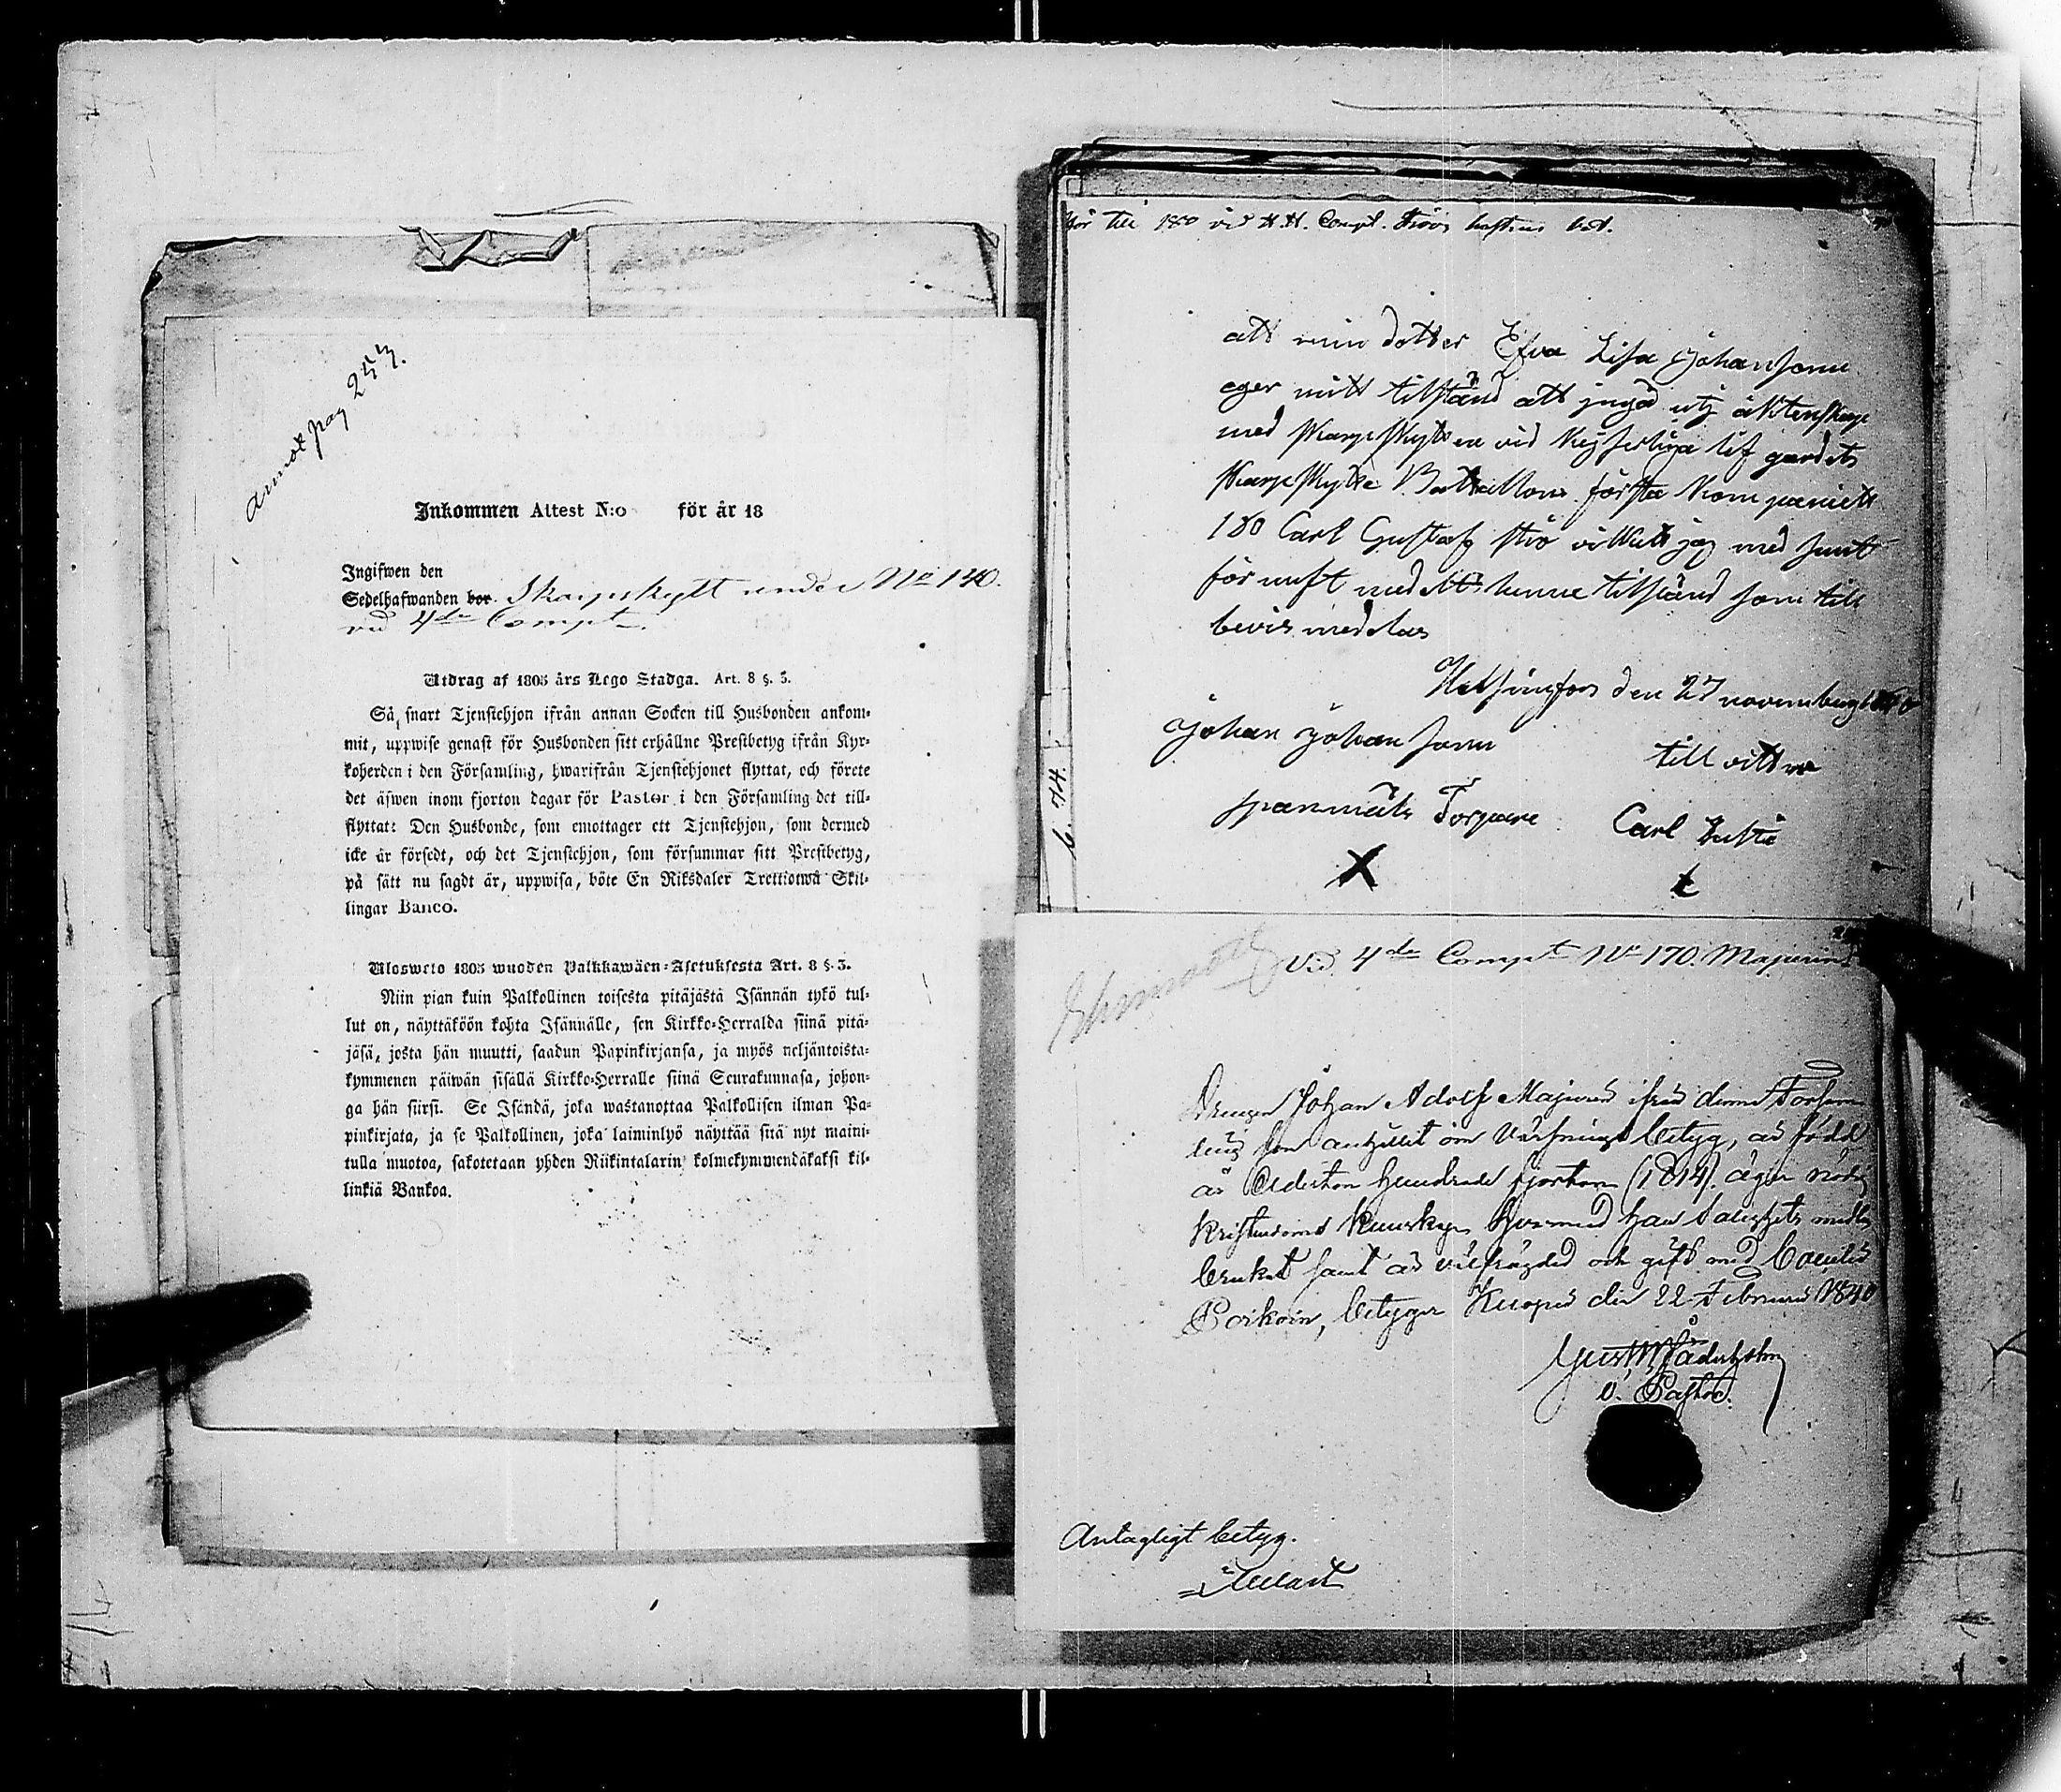 Annot pag 253.
Inkommen Attest N:o för år 18
Ingifwen den
Sedelhafwanden bor. Skarpskytt under No 140.
vid 4de Compt.
Utdrag af 1805 års Lego Stadga. Art. 8 §. 3.
Så snart Tjenstehjon ifrån annan Socken till Husbonden ankom-
mit, uppwise genast för Husbonden sitt erhållne Prestbetyg ifrån Kyr-
koherden i den Församling, hwarifrån Tjenstehjonet flyttat, och förete
det äfwen inom fjorton dagar för Pastor i den Församling det till-
flyttat: Den Husbonde, som emottager ett Tjenstehjon, som dermed
icke är försedt, och det Tjenstehjon, som försummar sitt Prestbetyg,
på sätt nu sagdt är, uppwisa, böte En Riksdaler Trettiotwå Skil-
lingar Banco.
Ulosweto 1805 wuoden Palkkawäen-Asetuksesta Art. 8 §. 3.
Niin pian kuin Palkollinen toisesta pitäjästä Isännän tykö tul-
lut on, näyttäköön kohta Isännälle, sen Kirkko-Herralda siinä pitä-
jäsä, josta hän muutti, saadun Papinkirjansa, ja myös neljäntoista-
kymmenen päiwän sisällä Kirkko-Herralle siinä Seurakunnasa, johon-
ga hän siirsi. Se Isändä, joka wastanottaa Palkollisen ilman Pa-
pinkirjata, ja se Palkollinen, joka laiminlyö näyttää sitä nyt maini-
tulla muotoa, sakotetaan yhden Riikintalarin kolmekymmendäkaksi kil-
linkiä Bankoa.
hör till 180 vid H.H. Compt. bet.
att min dotter Efva Lisa Johansonn
eger mitt tilstånd att ingå utj äktenskap
med skarpskytten vid Kejserliga lif gardets
skarpskytte Battallions första Kompaniett
180 Carl Gustaf Stio vilkett jag med sunt
förnuft meddelt henne tilstånd som till
bevis meddelas
Helsingfors den 27 november
Johan Johansonn
till vittne
Torpare
Carl
X
Vid 4de Compt No 170. Majurin
Drengen Johan Adolf Majurin ifrån denna Försam-
ling som anhållit om Värfnings betyg, är född
år Adertonhundrade fjorton (1814), äger nödig
Kristendoms Kunskap hvarmed han Salighets medlen
brukat samt är välfrägdad och gift med
Poikoin, betygar Kuopio den 22 Februarii 1840
Gust
v. Pastor.
Antagligt betyg.